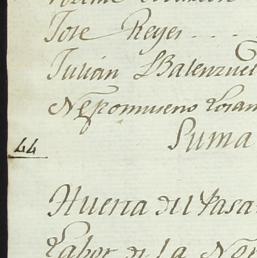 Jose Reyes . . .
Julián Balenzuel
Nepomuseno Loran
Suma
44
Huerta del Pasa
Labor de La Nor